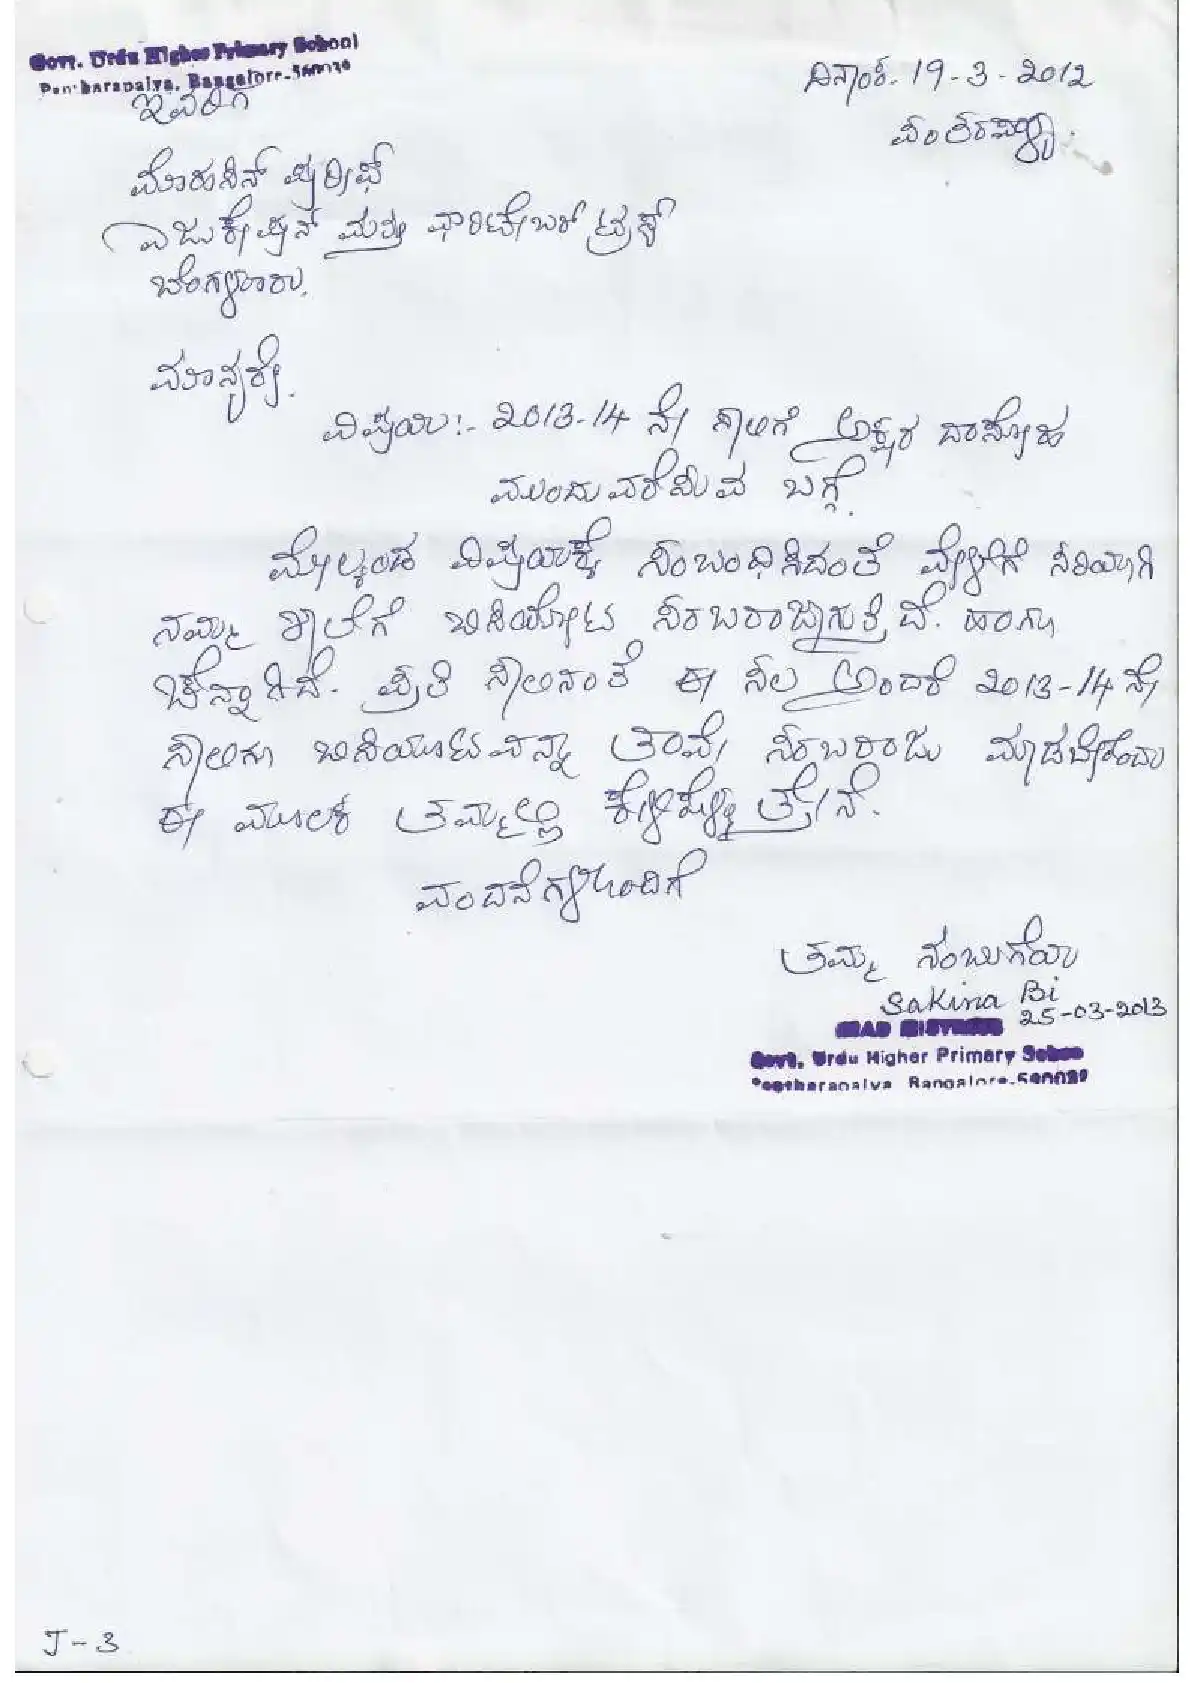 Govt. Urdu Higher Primary School
Pantharapalya, Bangalore-560039
ದಿನಾಂಕ. 19-3-2012
ಪಂತರಪಾಳ್ಯ.
ಇವರಿಗೆ
ಮೊಹಸಿನ್ ಷರೀಫ್
ಎಜುಕೇಷನ್ ಮತ್ತು ಚಾರಿಟೇಬಲ್ ಟ್ರಸ್ಟ್
ಬೆಂಗಳೂರು.
ಮಾನ್ಯರೇ.
ವಿಷಯ:- 2013-14 ನೇ ಸಾಲಿಗೆ ಅಕ್ಷರ ದಾಸೋಹ
ಮುಂದುವರೆಸುವ ಬಗ್ಗೆ.
ಮೇಲ್ಕಂಡ ವಿಷಯಕ್ಕೆ ಸಂಬಂಧಿಸಿದಂತೆ ವೇಳೆಗೆ ಸರಿಯಾಗಿ
ನಮ್ಮ ಶಾಲೆಗೆ ಬಿಸಿಯೂಟ ಸರಬರಾಜಾಗುತ್ತಿದೆ. ಹಾಗೂ
ಚೆನ್ನಾಗಿದೆ. ಪ್ರತಿ ಸಾಲಿನಂತೆ ಈ ಸಲ ಅಂದರೆ 2013-14 ನೇ
ಸಾಲಿಗೂ ಬಿಸಿಯೂಟವನ್ನು ತಾವೇ ಸರಬರಾಜು ಮಾಡಬೇಕೆಂದು
ಈ ಮೂಲಕ ತಮ್ಮಲ್ಲಿ ಕೇಳಿಕೊಳ್ಳುತ್ತೇನೆ.
ವಂದನೆಗಳೊಂದಿಗೆ
ತಮ್ಮ ನಂಬುಗೆಯ
Sakina Bi
25-03-2013
HEAD MISTRESS
Govt. Urdu Higher Primary School
Pantharapalya Bangalore-560039
J-3